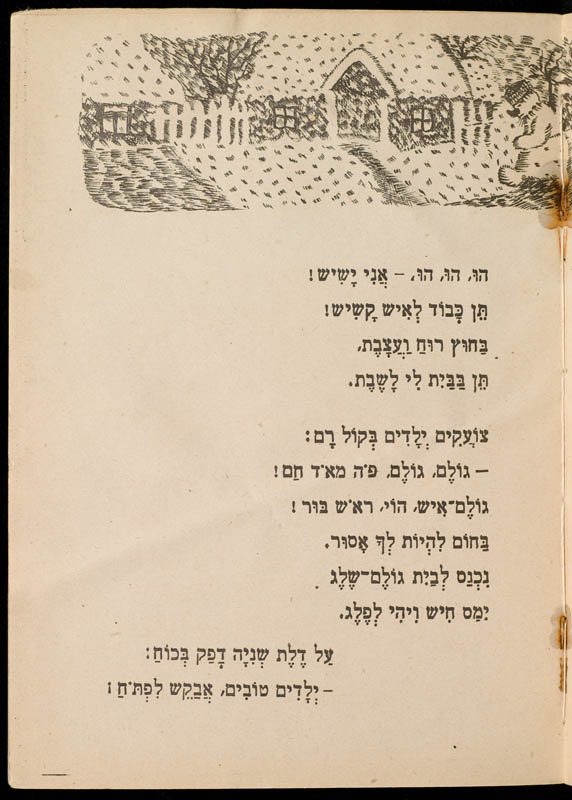 הוּ, הוּ, הוּ, – אֲנִי יָשִׁישׁ!
תֵּן כָּבוֹד לְאִישׁ קָשִׁישׁ!
בַּחוּץ רוּחַ וַעֲצָבֶת,
תֵּן בַּבַּיִת לִי לָשֶׁבֶת.
צוֹעֲקִים יְלָדִים בְּקוֹל רָם:
– גּוֹלֶם, גּוֹלֶם, פֹּה מְאֹד חַם!
גּוֹלֶם־אִישׁ, הוֹי, רֹאשׁ בּוּר!
בַּחוֹם לִהְיוֹת לְךָ אָסוּר.
נִכְנַס לְבַיִת גּוֹלֶם־שֶׁלֶג
יִמַּס חִישׁ וִיהִי לְפֶלֶג.
עַל דֶּלֶת שְׁנִיָּה דָּפַק בְּכוֹחַ:
– יְלָדִים טוֹבִים, אֲבַקֵּשׁ לִפְתֹּחַ!